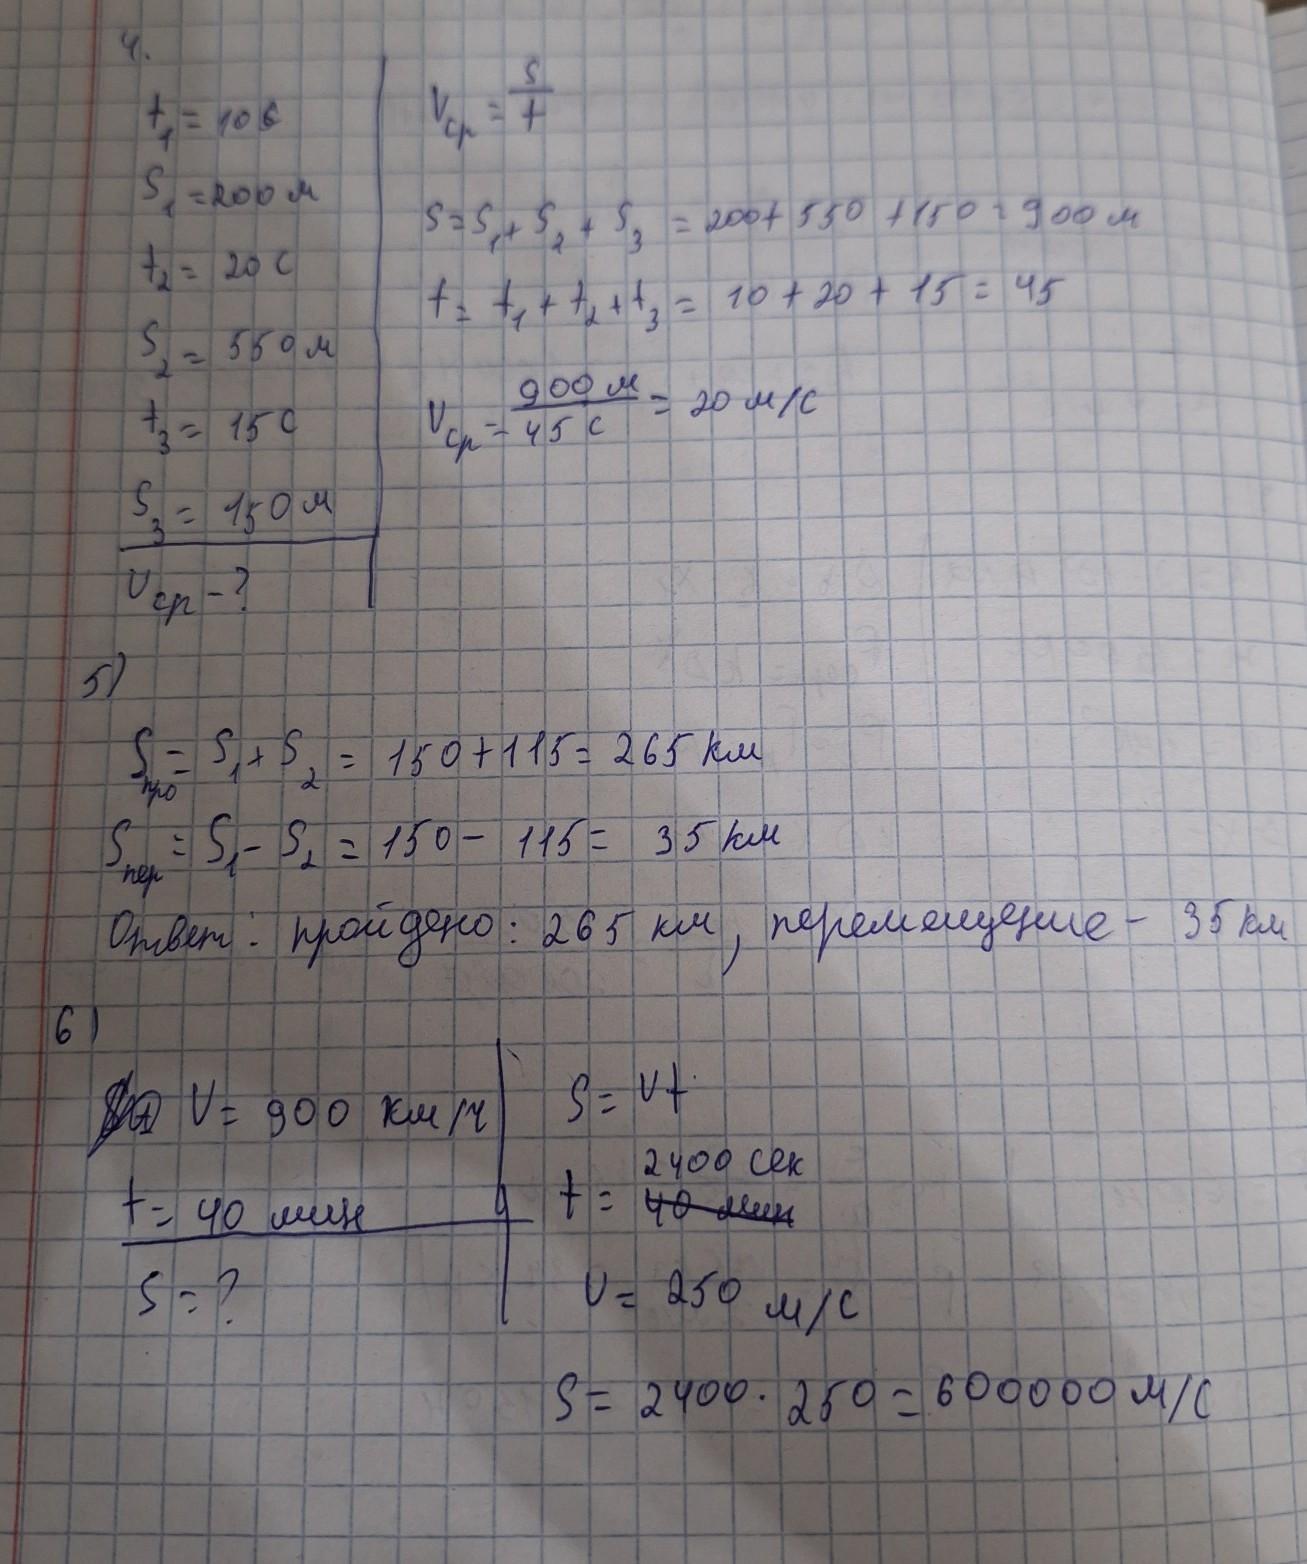 4.
t₁ = 10 с
S₁ = 200 м
t₂ = 20 с
S₂ = 550 м
t₃ = 15 с
S₃ = 150 м
Vср - ?
Vср = S/t
S = S₁ + S₂ + S₃ = 200 + 550 + 150 = 900 м
t = t₁ + t₂ + t₃ = 10 + 20 + 15 = 45
Vср = 900 м/45 с = 20 м/с
5)
Sпро = S₁ + S₂ = 150 + 115 = 265 км
Sпер = S₁ - S₂ = 150 - 115 = 35 км
Ответ: пройдено: 265 км, перемещение - 35 км
6)
V = 900 км/ч
t = 40 мин
S = ?
S = Vt
2400 сек
t = 40 мин
V = 250 м/с
S = 2400 · 250 = 600000 м/с